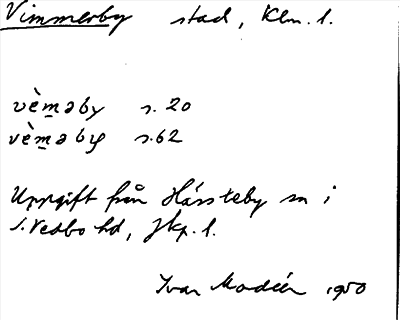 Vimmerby stad, Klm. l.
vèm̲əby s. 20
vèm̲əby s. 62
Uppgift från Hässleby sn i
S. Vedbo hd, Jkp. l.
Ivar Modéer 1950